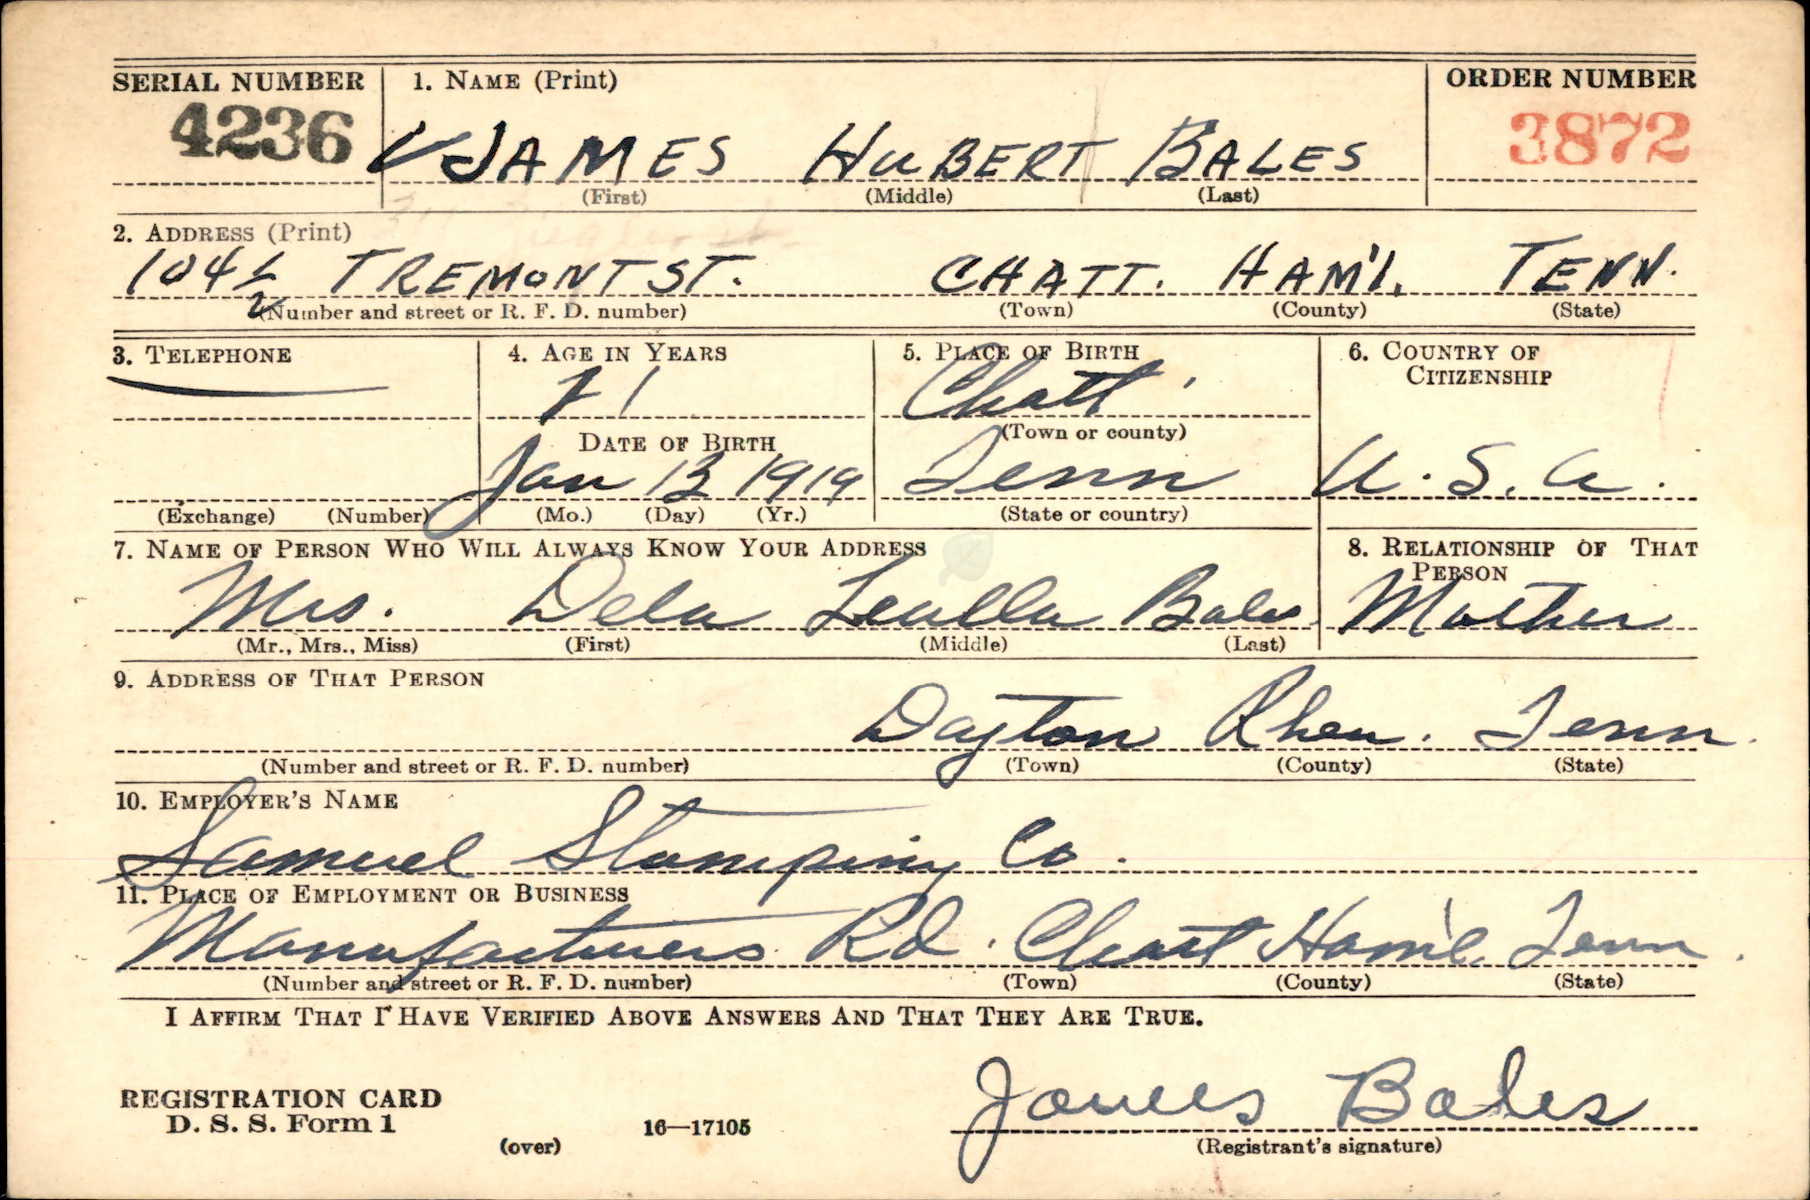 SERIAL NUMBER 1. NAME (Print) ORDER NUMBER
4236 JAMES HUBERT BALES 3872
(First) (Middle) (Last)
2. ADDRESS (Print)
104½ TREMONT ST. CHATT. HAM'L. TENN.
(Number and street or R. F. D. number) (Town) (County) (State)
3. TELEPHONE 4. AGE IN YEARS 5. PLACE OF BIRTH 6. COUNTRY OF CITIZENSHIP
21 Chatt.
DATE OF BIRTH (Town or county)
Jan 13 1919 Tenn U.S.A.
(Exchange) (Number) (Mo.) (Day) (Yr.) (State or country)
7. NAME OF PERSON WHO WILL ALWAYS KNOW YOUR ADDRESS 8. RELATIONSHIP OF THAT PERSON
Mrs. Dela Leulla Bales Mother
(Mr., Mrs., Miss) (First) (Middle) (Last)
9. ADDRESS OF THAT PERSON
Dayton Rhea. Tenn.
(Number and street or R. F. D. number) (Town) (County) (State)
10. EMPLOYER'S NAME
Samuel Stamping Co.
11. PLACE OF EMPLOYMENT OR BUSINESS
Manufacturers Rd. Chatt Ham'l. Tenn.
(Number and street or R. F. D. number) (Town) (County) (State)
I AFFIRM THAT I HAVE VERIFIED ABOVE ANSWERS AND THAT THEY ARE TRUE.
James Bales
REGISTRATION CARD
D. S. S. Form 1 16—17105
(over) (Registrant's signature)